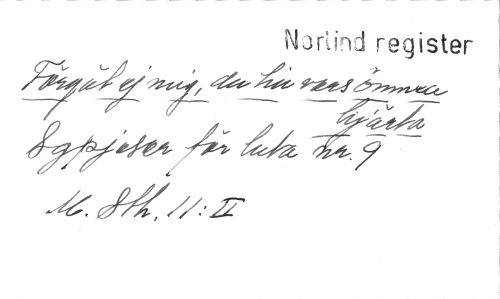 Norlind register
Förgät ej mig, du hu vars ömma
hjärta
Sgpjeser för luta nr. 9
M. Sth. 11: II